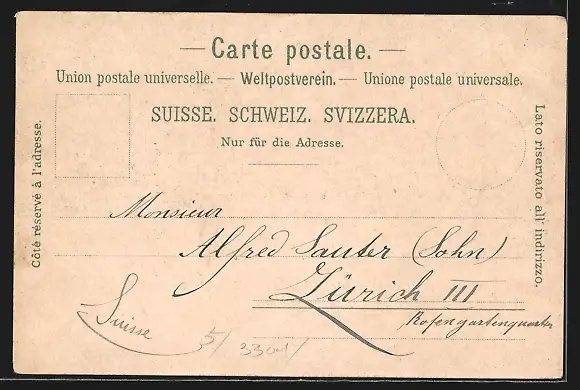 — Carte postale. —
Union postale universelle. — Weltpostverein. — Unione postale universale.
SUISSE. SCHWEIZ. SVIZZERA.
Nur für die Adresse.
Côté réservé à l'adresse.
Lato riservato all' indirizzo.
Monsieur
Alfred Sauter (Sohn)
Zürich III
Rosengartenquartier
Suisse
5/
3301/